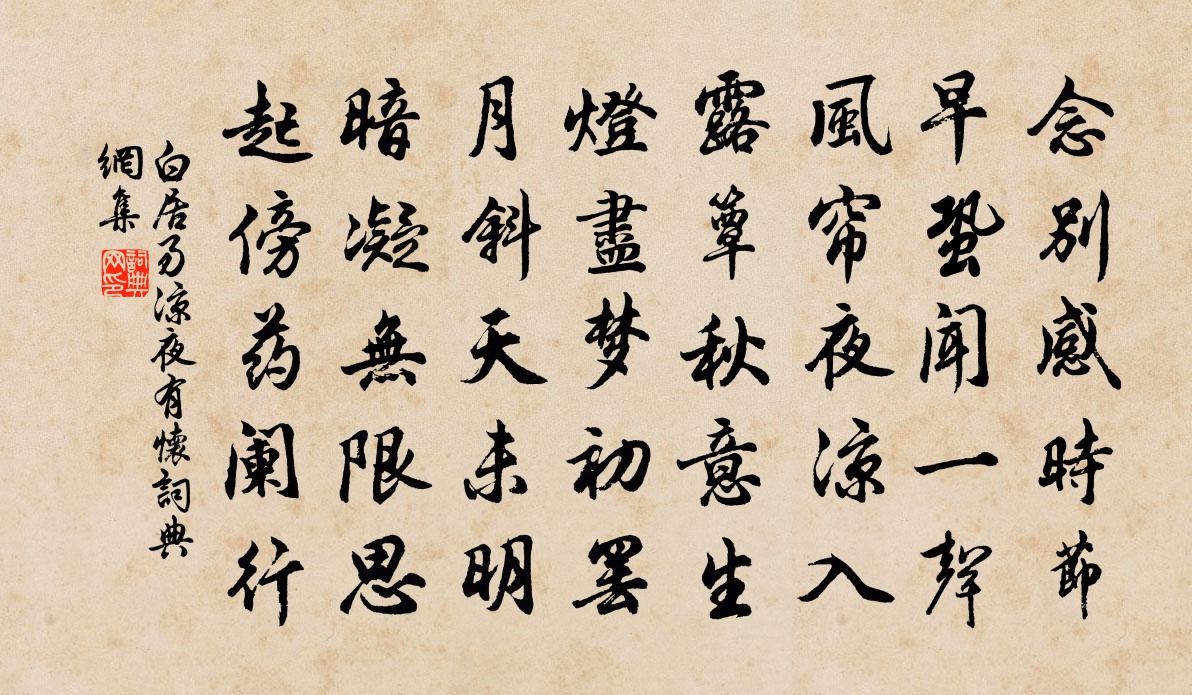 念別感時節
早蛩闻一聲
風帘夜凉入
露簟秋意生
燈盡梦初罢
月斜天未明
暗凝無限思
起傍药阑行
白居易凉夜有懷詞典
網集
詞典
网印